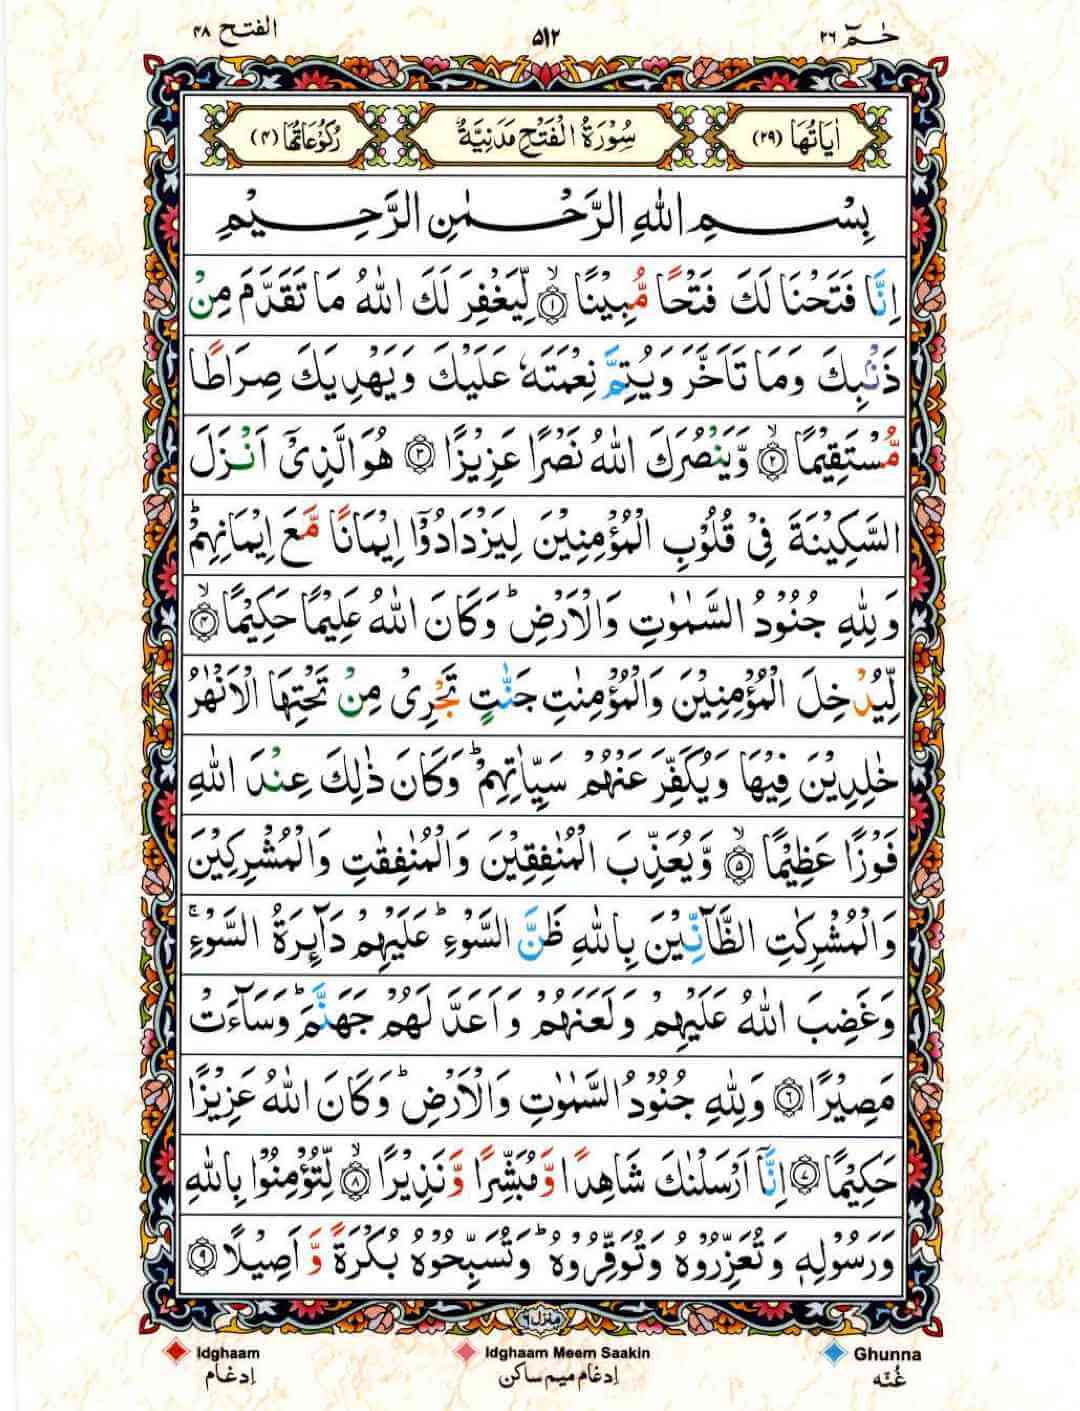 حٰمٓ ٢٦
٥١٢
الفتح ٤٨
اٰيَاتُهَا (٢٩)
سُوْرَةُ الْفَتْحِ مَدَنِيَّةٌ
رُكُوْعَاتُهَا (٤)
بِسْمِ اللّٰهِ الرَّحْمٰنِ الرَّحِيْمِ
اِنَّا فَتَحْنَا لَكَ فَتْحًا مُّبِيْنًا ۙ‏﴿۱﴾ لِّيَغْفِرَ لَكَ اللّٰهُ مَا تَقَدَّمَ مِنْ
ذَنْۢبِكَ وَمَا تَاَخَّرَ وَيُتِمَّ نِعْمَتَهٗ عَلَيْكَ وَيَهْدِيَكَ صِرَاطًا
مُّسْتَقِيْمًا ۙ﴿۲﴾ وَّيَنْصُرَكَ اللّٰهُ نَصْرًا عَزِيْزًا ﴿۳﴾ هُوَ الَّذِيْۤ اَنْزَلَ
السَّكِيْنَةَ فِيْ قُلُوْبِ الْمُؤْمِنِيْنَ لِيَزْدَادُوْۤا اِيْمَانًا مَّعَ اِيْمَانِهِمْ ؕ
وَلِلّٰهِ جُنُوْدُ السَّمٰوٰتِ وَالْاَرْضِ ؕ وَكَانَ اللّٰهُ عَلِيْمًا حَكِيْمًا ۙ﴿۴﴾
لِّيُدْخِلَ الْمُؤْمِنِيْنَ وَالْمُؤْمِنٰتِ جَنّٰتٍ تَجْرِيْ مِنْ تَحْتِهَا الْاَنْهٰرُ
خٰلِدِيْنَ فِيْهَا وَيُكَفِّرَ عَنْهُمْ سَيِّاٰتِهِمْ ؕ وَكَانَ ذٰلِكَ عِنْدَ اللّٰهِ
فَوْزًا عَظِيْمًا ۙ﴿۵﴾ وَّيُعَذِّبَ الْمُنٰفِقِيْنَ وَالْمُنٰفِقٰتِ وَالْمُشْرِكِيْنَ
وَالْمُشْرِكٰتِ الظَّآنِّيْنَ بِاللّٰهِ ظَنَّ السَّوْءِ ؕ عَلَيْهِمْ دَآئِرَةُ السَّوْءِ ۚ
وَغَضِبَ اللّٰهُ عَلَيْهِمْ وَلَعَنَهُمْ وَاَعَدَّ لَهُمْ جَهَنَّمَ ؕ وَسَآءَتْ
مَصِيْرًا ﴿۶﴾ وَلِلّٰهِ جُنُوْدُ السَّمٰوٰتِ وَالْاَرْضِ ؕ وَكَانَ اللّٰهُ عَزِيْزًا
حَكِيْمًا ﴿۷﴾ اِنَّاۤ اَرْسَلْنٰكَ شَاهِدًا وَّمُبَشِّرًا وَّنَذِيْرًا ۙ﴿۸﴾ لِّتُؤْمِنُوْا بِاللّٰهِ
وَرَسُوْلِهٖ وَتُعَزِّرُوْهُ وَتُوَقِّرُوْهُ ؕ وَتُسَبِّحُوْهُ بُكْرَةً وَّاَصِيْلًا ﴿۹﴾
منزل ٦
Idghaam
Idghaam Meem Saakin
Ghunna
اِدغَام
اِدغَام مِيم ساكن
غُنّه